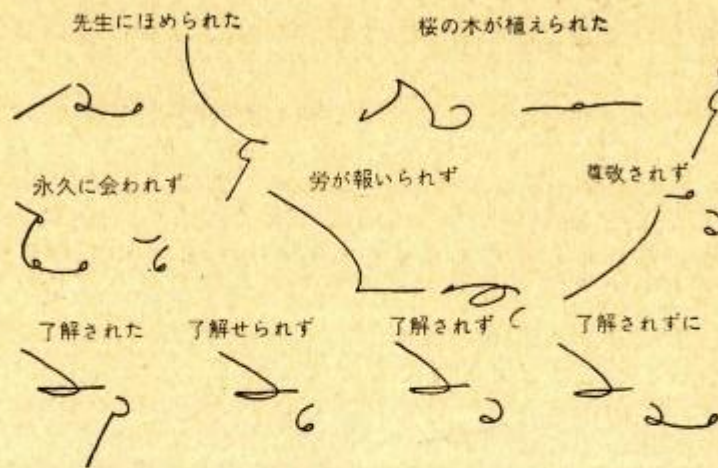 先生にほめられた 桜の木が植えられた
永久に会われず 労が報いられず 尊敬されず
了解された 了解せられず 了解されず 了解されずに